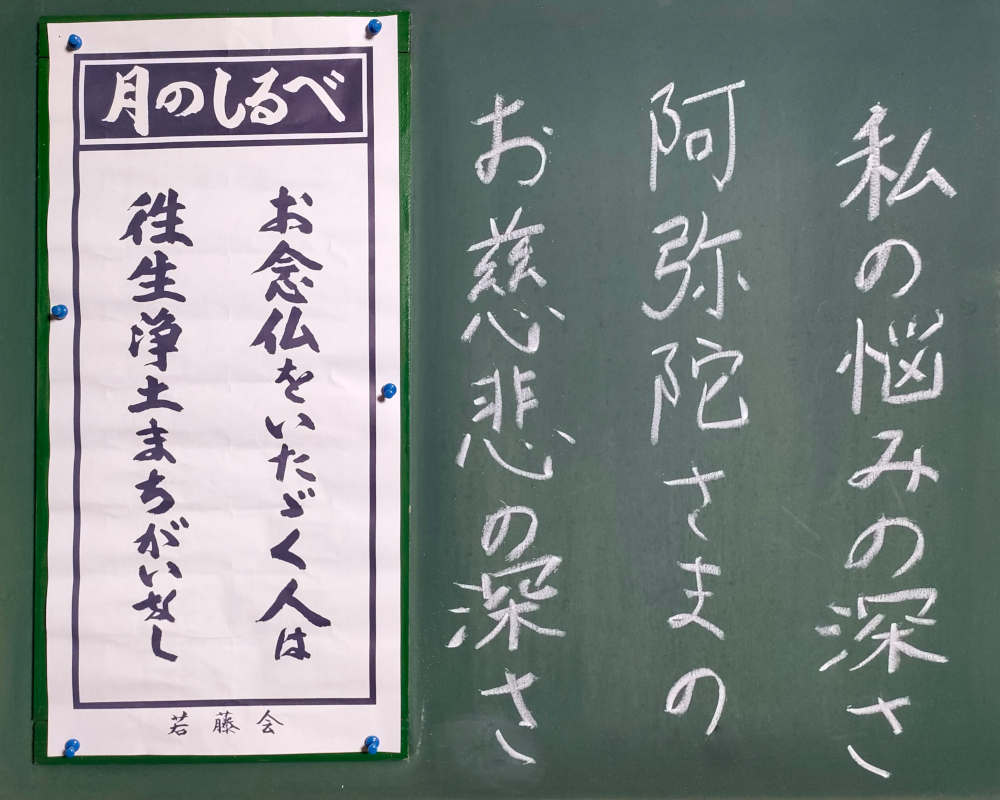 月のしるべ
お念仏をいたゞく人は
往生浄土まちがいなし
若藤会
私の悩みの深さ
阿弥陀さまの
お慈悲の深さ